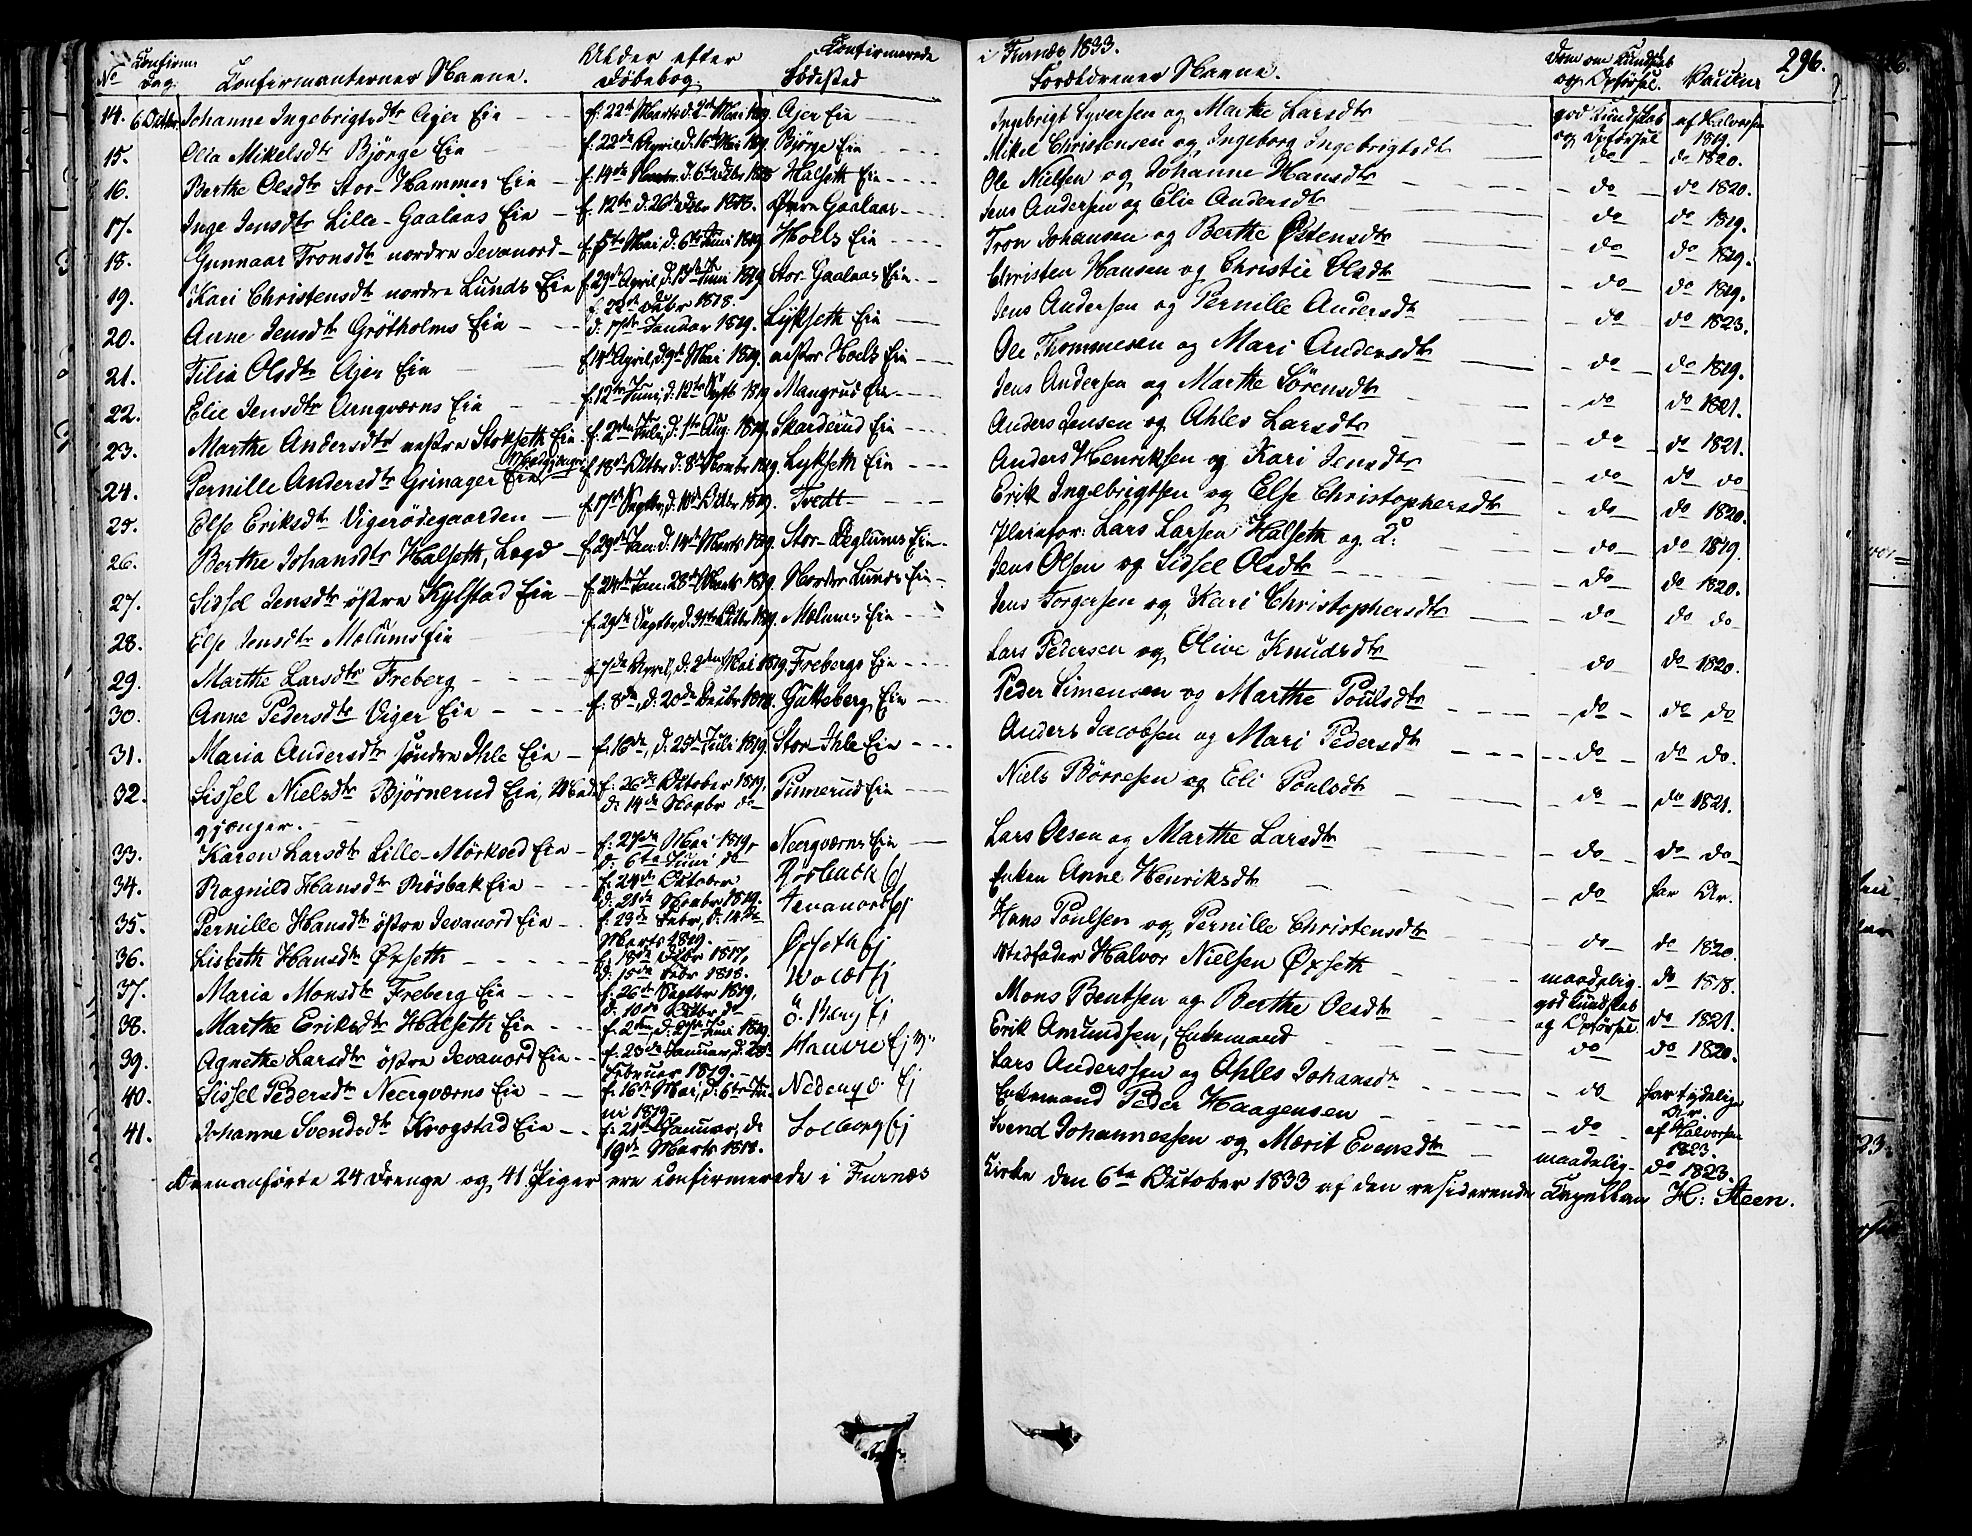 Confirmerede i Furnæs 1833.
296.
No Confirm: Dag. Confirmanternes Navne. Alder efter Døbebog. Fødested Forældrenes Navne. Dom om Kundskab og Opførsel. Vaccine
14. 6 Octbr Johanne Ingebrigtsdtr Ajer Eie f. 22de Marts d. 2den Mai 1819 Ajer Eie Ingebrigt Syversen og Marthe Larsdtr god Kundskab og Opførsel af Halvorsen 1819.
15. Olia Mikelsdtr Bjørge Eie f. 22de April d. 16de Mai 1819 Bjørge Eie Mikel Christensen og Ingeborg Ingebrigtsdtr do do 1820.
16. Berthe Olsdtr Stor-Hammer Eie f. 14de d. 6te Halseth Eie Ole Nielsen og Johanne Hansdtr do do 1820.
17. Inge Jensdtr Lille-Gaalaas Eie f. 12te d. 26de 1818. Øvre Gaalaas Jens Andersen og Elie Andersdtr do do 1819.
18. Gunnaar Tronsdtr nordre Jevanord f. 5te Mai, d. 6te Juni 1819. Hoels Eie Tron Johansen og Berthe Østensdtr do do 1829.
19. Kari Christensdtr nordre Lunds Eie f. 29de April, d. 13de Juni 1819. Stor-Gaalaas Eie Christen Hansen og Christie Olsdtr do do 1819.
20. Anne Jensdtr Grøtholms Eie f. 22de Octbr 1818. d. 17de Januar 1819. Lykseth Eie Jens Andersen og Pernille Andersdtr do do 1823.
21. Tilia Olsdtr Ajer Eie f. 14de April, d. 9de Mai 1819. vestre Hoels Eie Ole Thommesen og Mari Andersdtr do do 1819.
22. Elie Jensdtr Arngværns Eie f. 12te Juni, d. 12te Septb 1819 Mangrud Eie Jens Andersen og Marthe Sørensdtr do do 1821.
23. Marthe Andersdtr vestre Stokseth Eie f. 2den Juli, d. 1ste Aug. 1819. Skarderud Eie Anders Jensen og Ahles Larsdtr do do 1821.
24. Pernille Andersdtr Grinager Eie f. 18de Octbr, d. 8de Novbr 1819. Lykseth Eie Anders Henriksen og Kari Jensdtr do do do
25. Else Eriksdtr Vigerødegaarden f. 17de Septbr, d. 10de Octbr 1819. Tvedt Erik Ingebrigtsen og Else Christophersdtr do do 1820.
26. Berthe Johansdtr Halseth, Lægd f. 29de Jan: d. 14de Marts 1819. Stor-Deglums Eie Plejefor: Lars Larsen Halseth og Q: do do 1819.
27. Sidsel Jensdtr østre Kylstad Eie f. 24de Jan. 28de Marts 1819. Nordre Lunds Eie Jens Olsen og Sidsel Olsdtr do do 1820.
28. Else Jensdtr Melums Eie f. 29de Septbr, d. 31te Octbr 1819. Melums Eie Jens Torgersen og Kari Christophersdtr do do do
29. Marthe Larsdtr Freberg f. 7de April, d. 2den Mai 1819. Frebergs Eie Lars Pedersen og Olive Knudsdtr do do 1820.
30. Anne Pedersdtr Viger Eie f. 8de, d. 20de Decbr 1818. Gukkeberg Eie Peder Simensen og Marthe Poulsdtr do do do
31. Maria Andersdtr søndre Ihle Eie f. 16de, d. 25de Juli 1819. Stor-Ihle Eie Anders Jacobsen og Mari Pedersdtr do do do.
32. Sissel Nielsdtr Bjørnerud Eie, Medgjænger. f. 26de October 1819, d. 14de Novbr do Pinnerud Eie Niels Børresen og Eli Poulsdtr do do 1821.
33. Karen Larsdtr Lille-Mørkved Eie f. 27de Mai 1819, d. 6te Juni do Neergværns Eie Lars Olsen og Marthe Larsdtr do do do
34. Ragnild Hansdtr Røsbak Eie f. 24de October d. 21de Novbr 1819. Røsbach Ej Enken Anne Henriksdtr do har Ar.
35. Pernille Hansdtr østre Jevanord Eie f. 23de Febr, d. 14de Marts 1819. Jevanord Ej Hans Poulsen og Pernille Christensdtr do do 1820.
36. Lisbeth Hansdtr Øxseth f. 18de 1817, d. 15de Febr 1818. Øxseth Ej Stedfader Halvor Nielsen Øxseth maadelig. do 1818.
37. Maria Monsdtr Freberg Eie f. 26de Septbr 1819, d. 10de Octbr do Ej Mons Bentsen og Berthe Olsdtr god Kundskab og Opførsel do 1821.
38. Marthe Eriksdtr Halseth Eie f. 2den, d. 27de Juni 1819. ö. Berg Ej Erik Amundsen, Enkemand do do 1820.
39. Agnethe Larsdtr østre Jevanord Eie f. 23de Januar, d. 28de Februar 1819. Lars Anderssen og Ahles Johansdtr do har tydelige Ar.
40. Sissel Pedersdtr Neergværns Eie f. 16de Mai, d. 6te Juni 1819. Ej Enkemand Peder Haagensen do af Halvorsen 1823.
41. Johanne Svendsdtr Krogstad Eie f. 21de Januar, d. 19de Marts 1818. Solberg Ej Svend Johannessen og Marit Evensdtr maadelig. do 1823.
Ovenanførte 24 Drenge og 41 Piger ere Confirmerede i Furnæs Kirke den 6te October 1833 af den residerende Capellan H: Steen.